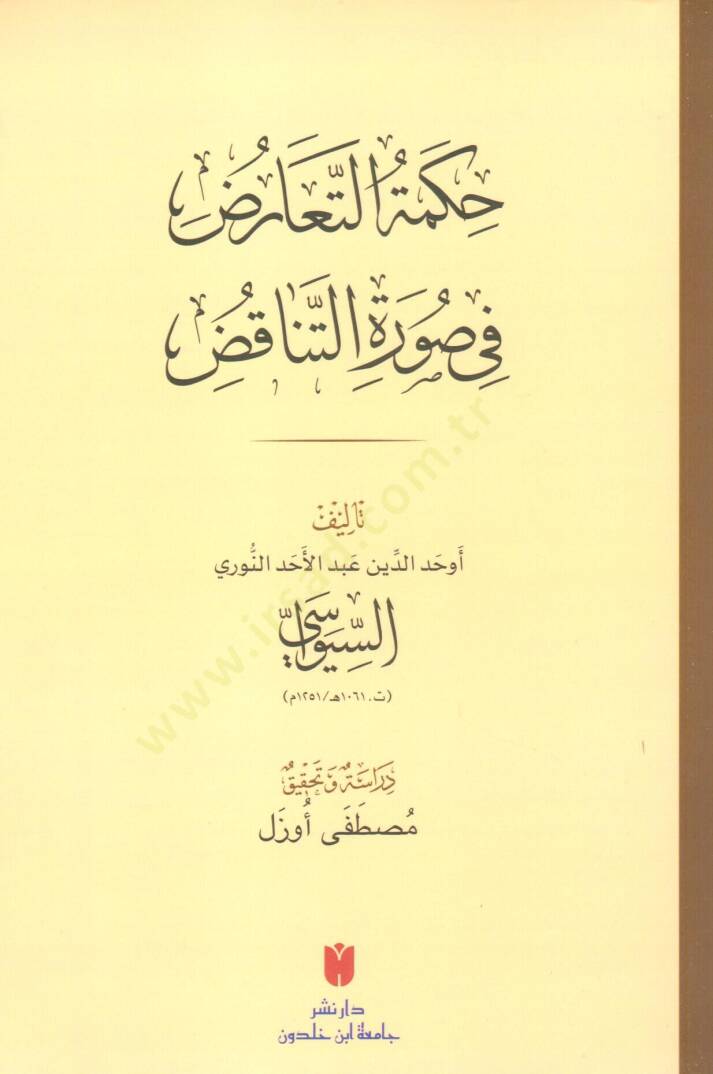 حِكَمَةُ التَّعَارُضِ
فِي صُورَةِ التَّنَاقُضِ
تأليف
أَوحَد الدِّين عَبد الأَحَد النُّوري
السِّيوَاسِيّ
(ت. ١٠٦١هـ/١٢٥١م)
دِرَاسَةٌ وَتَحْقِيقٌ
مُصطَفَى أُوزَل
دار نشر
جامعة ابن خلدون
www.irsad.com.tr